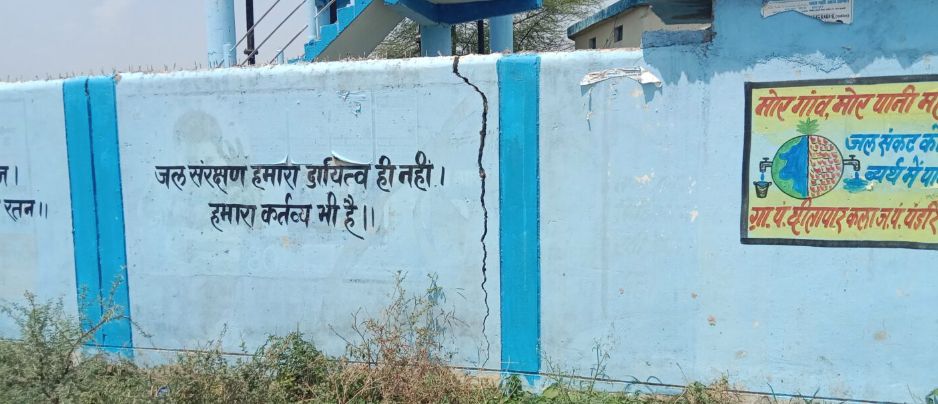 रतन॥
जल संरक्षण हमारा दायित्व ही नहीं।
हमारा कर्तव्य भी है॥
मोर गांव, मोर पानी
जल संकट को
व्यर्थ में
ग्रा. पं.
कला ज. पं. पंडरि